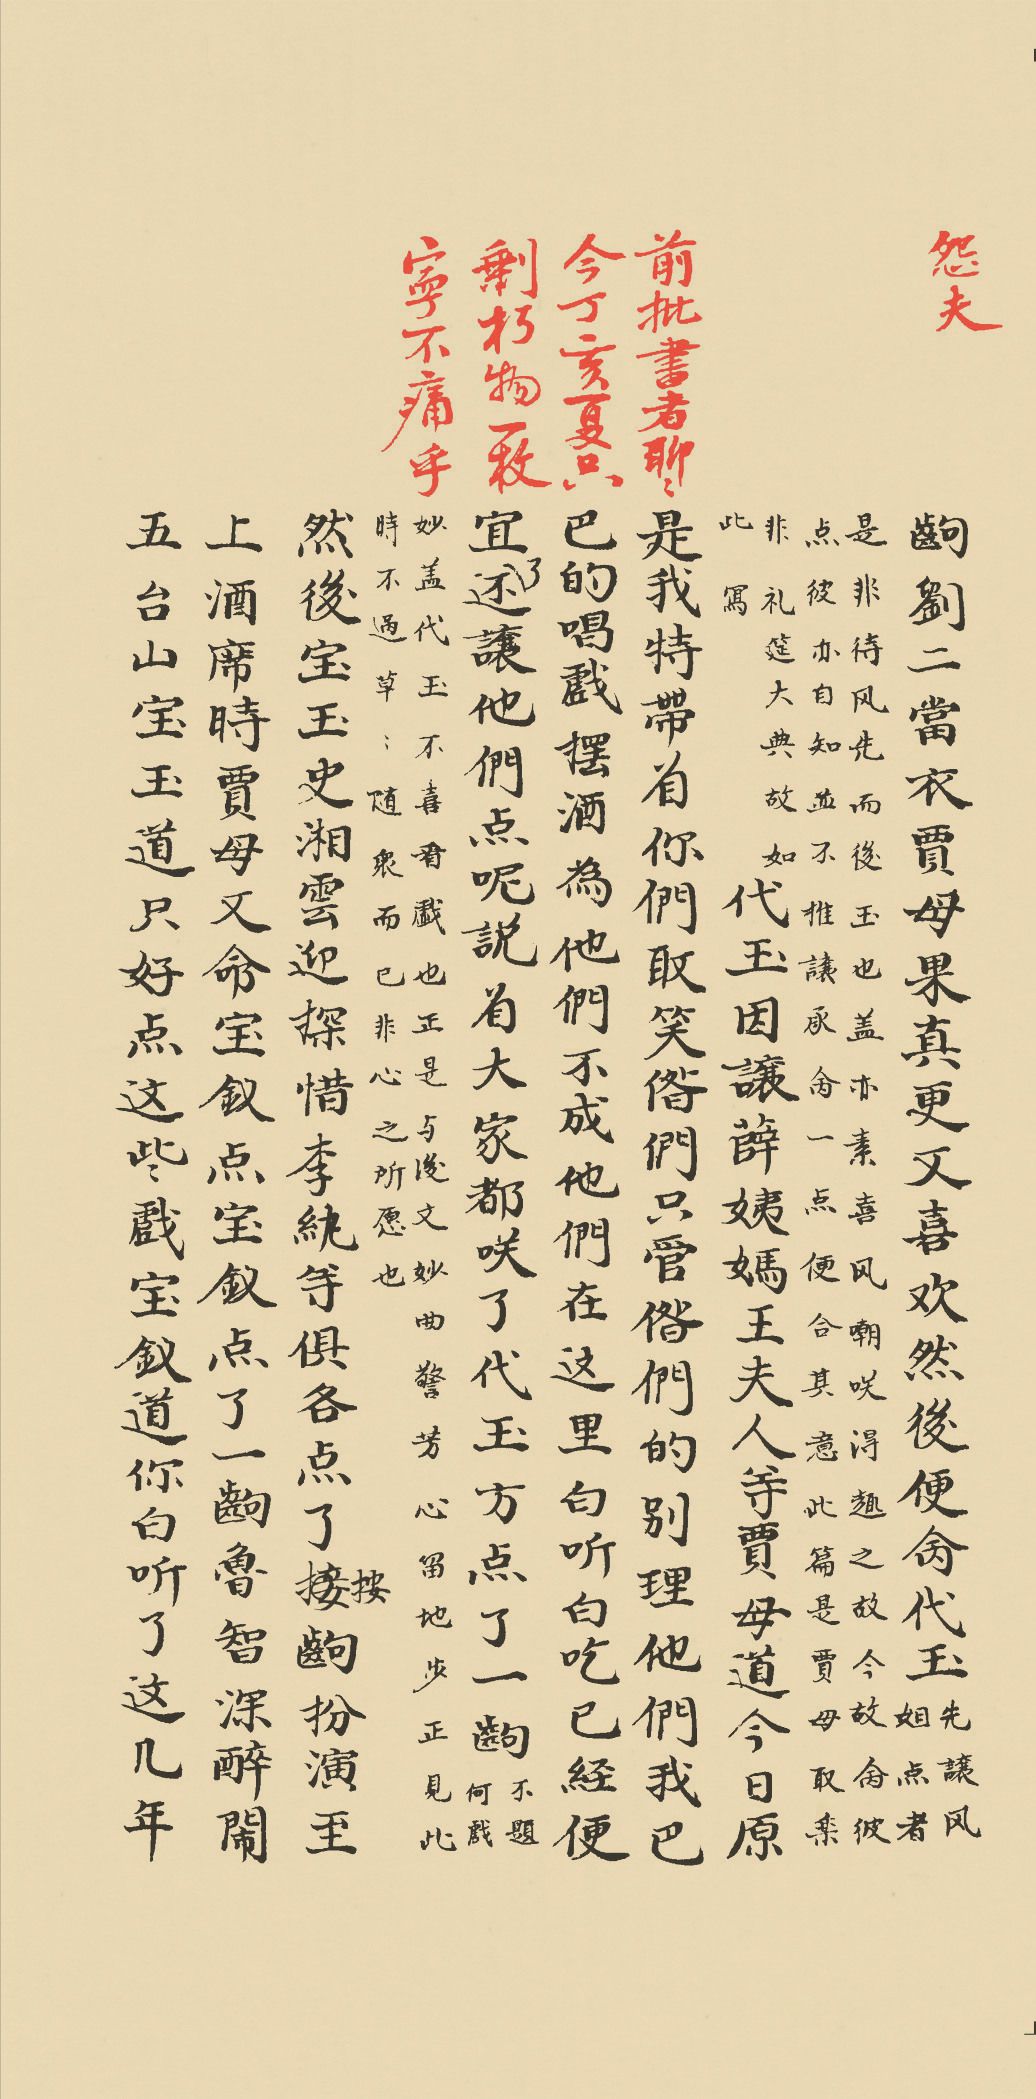 怨夫
前批書者聊〻
今丁亥夏只
剩朽物一枚
寧不痛乎
齣劉二當衣賈母果真更又喜欢然後便命代玉
先讓风
姐点者
是非待风先而後玉也盖亦素喜风嘲咲得趣之故今故命彼
点彼亦自知並不推讓承命一点便合其意此篇是賈母取楽
非礼筵大典故如
此寫
代玉因讓薛姨媽王夫人等賈母道今日原
是我特帶着你們取笑偺們只管偺們的别理他們我巴
巴的唱戲摆酒為他們不成他們在这里白听白吃已経便
宜了还讓他們点呢説着大家都咲了代玉方点了一齣
不題
何戲
妙盖代玉不喜看戲也正是与後文妙曲警芳心留地步正見此
時不過草〻随衆而已非心之所愿也
然後宝玉史湘雲迎探惜李紈等俱各点了接齣扮演至
按
上酒席時賈母又命宝釵点宝釵点了一齣魯智深醉鬧
五台山宝玉道只好点这些戲宝釵道你白听了这几年